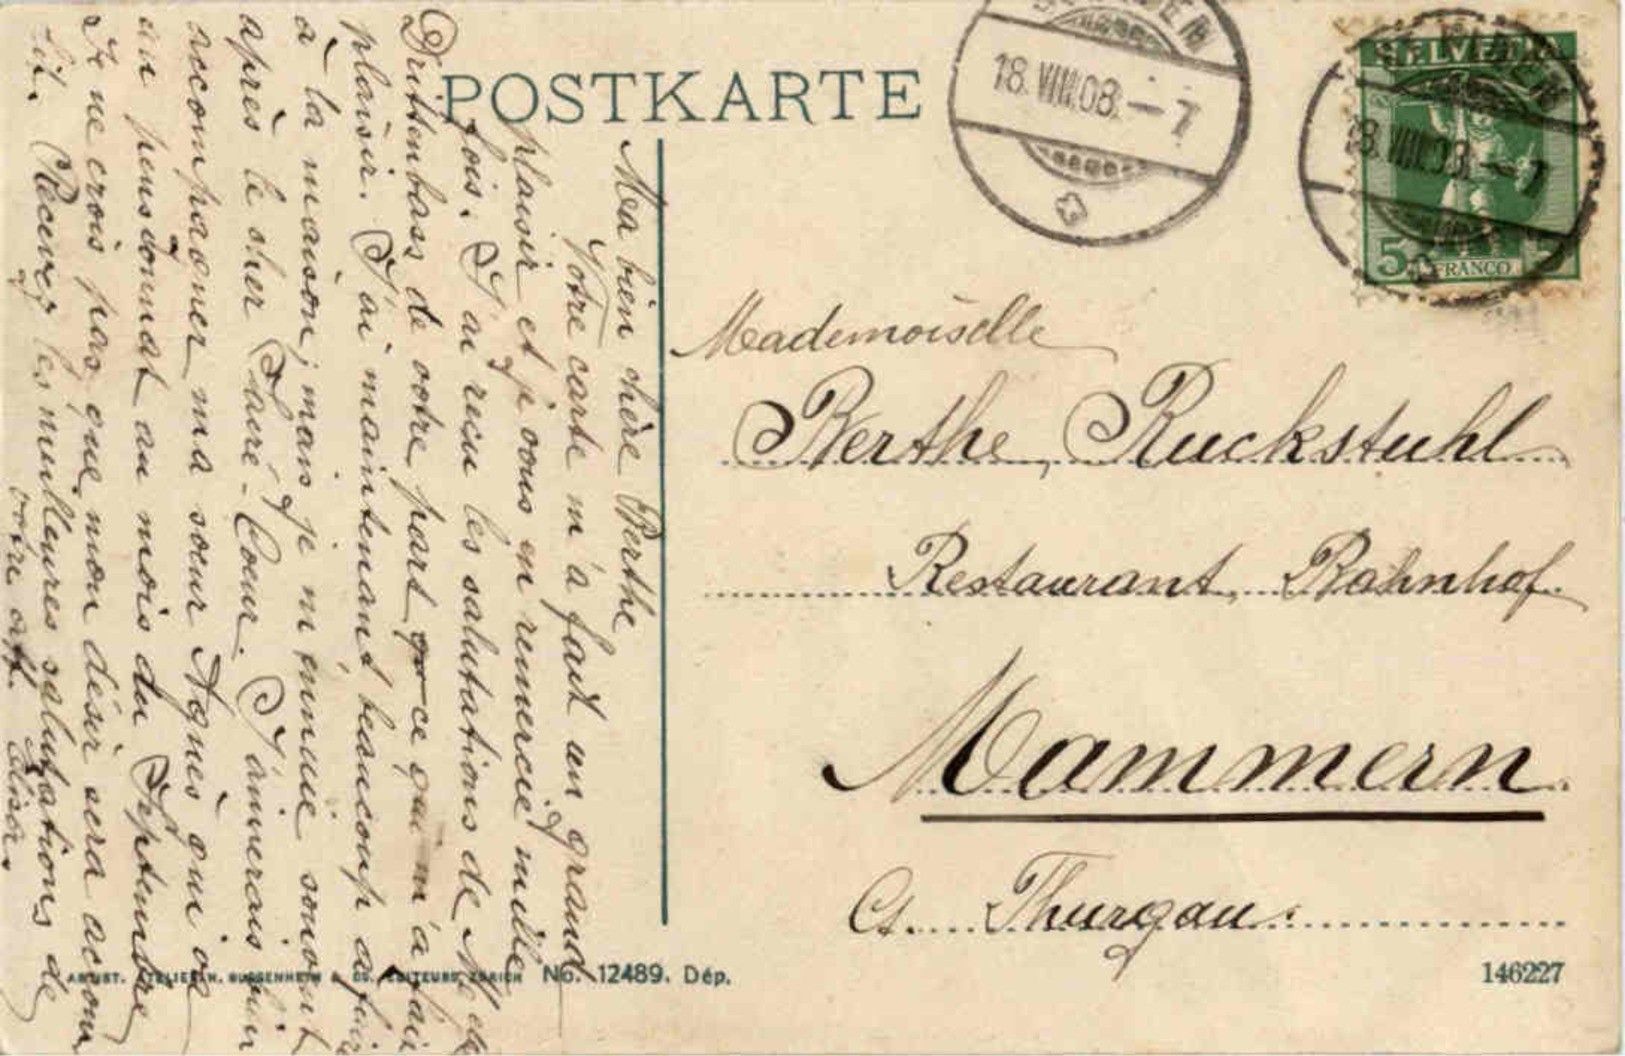 POSTKARTE
18.VIII.08.–7
HELVETIA
18.VIII.08.–7
5 FRANCO 5
Ma bien chère Berthe
Votre carte m'a fait un grand
plaisir et je vous en remercie mille
fois. J'ai reçu les salutations de M. de
Drittenbass de votre part ce qui m'a fait
plaisir. J'ai maintenant beaucoup à faire
à la maison; mais je m'ennuie souvent
après le cher Sacré-Coeur. J'aimerais bien
accompagner ma soeur Agnès qui ira
au pensionnat au mois du Septembre
Je ne crois pas que mon désir sera accom
plit. Recevez les meilleures salutations de
votre aff.
Mademoiselle
Berthe Ruckstuhl
Restaurant Bahnhof
Mammern
Ct. Thurgau.
ARTIST. ATELIER H. GUGGENHEIM & CO. EDITEURS, ZÜRICH No. 12489. Dép.
146227